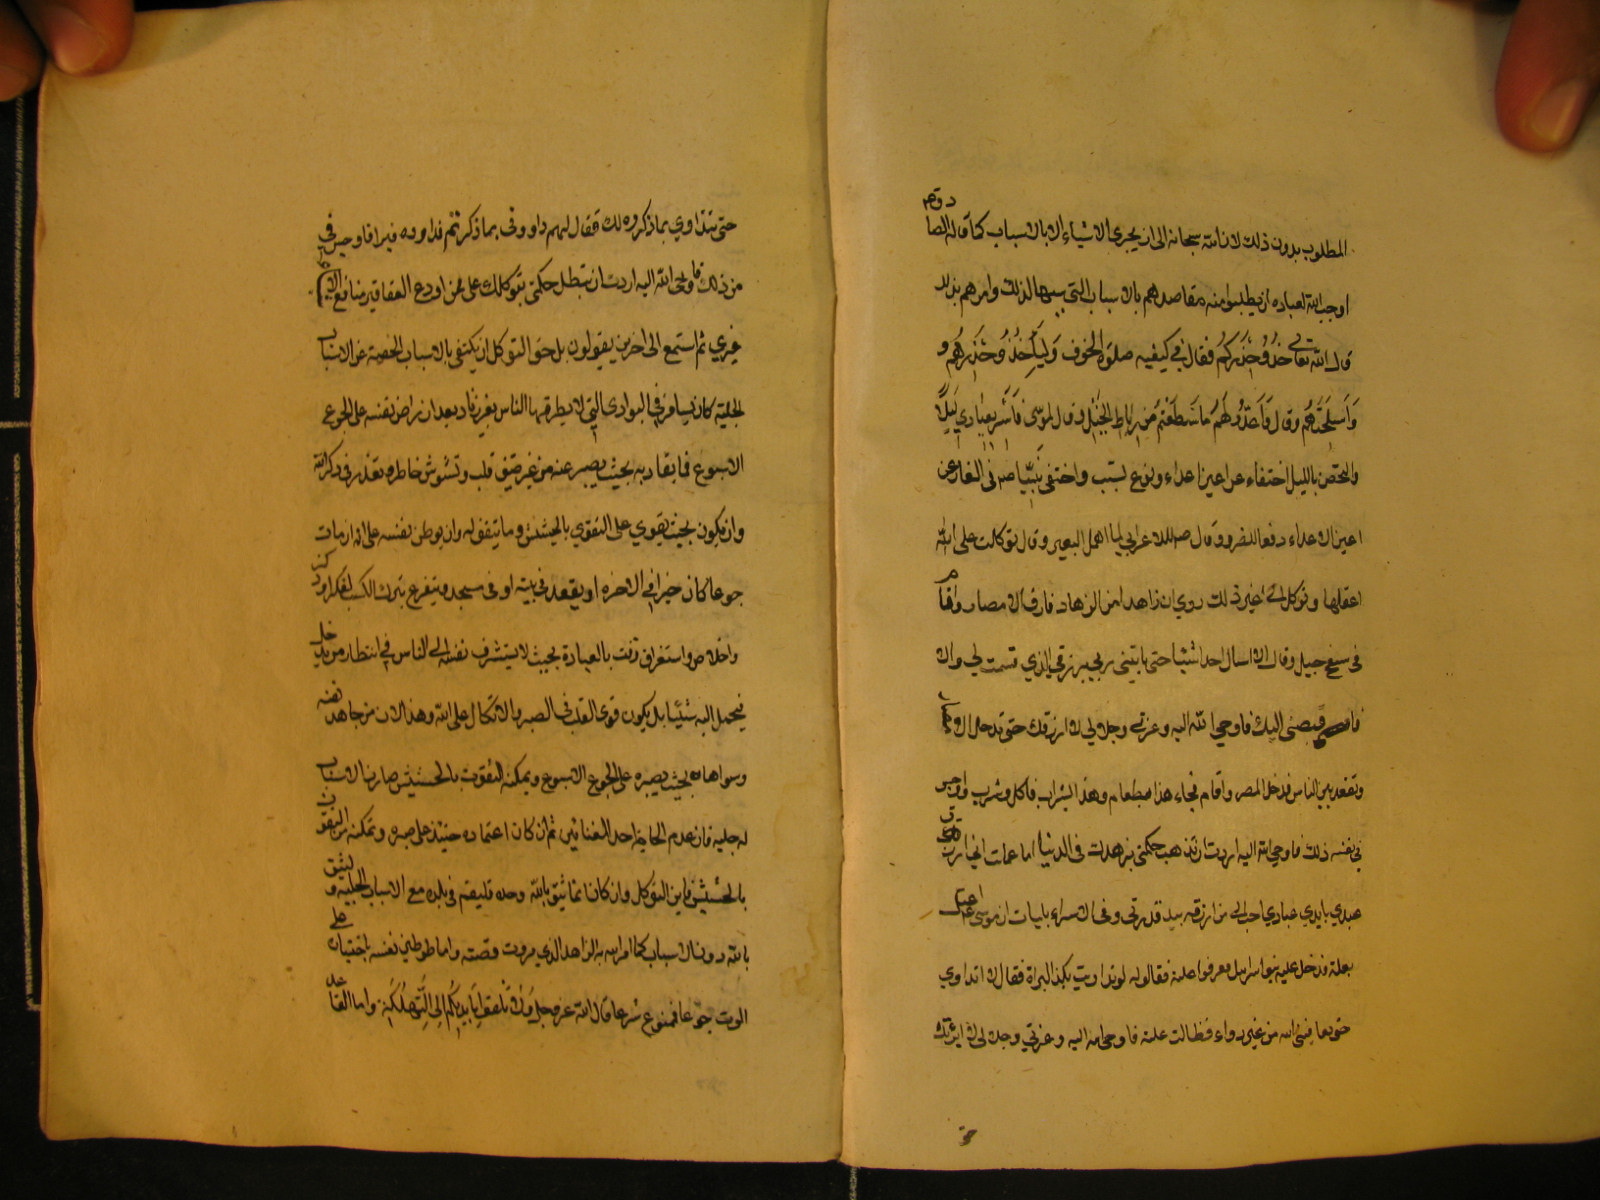 المطلوب بدون ذلك لان الله سبحانه ابى ان يجري الاشياء الا بالاسباب كما قاله الصادق م
اوجب الله لعباده ان يطلبوا منه مقاصدهم بالاسباب التي سببها لذلك وامرهم بذلك
قال الله تعالى خذوا حذركم فقال في كيفيه صلوة الخوف وليأخذوا حذرهم و
وأسلحتهم وقال واعدوا لهم ما استطعتم من رباط الخيل وقال لموسى فأسر بعبادي ليلا
والتحصن بالليل اختفاء عن اعين اعداء ونوع تسبب واختفى نبينا صم في الغار عن
اعين الاعداء دفعا للضرر وقال صم للاعرابي لما اهمل البعير وقال توكلت على الله
اعقلها وتوكل الى غير ذلك روي ان زاهدا من الزهاد فارق الامصار واقام
في سفح جبل وقال لا اسال احدا شيئا حتى ياتيني ربي برزقي الذي قسمت لي والا
فاقبضني اليك فاوحى الله اليه وعزتي وجلالي لا ارزقك حتى تدخل الامصار
وتقعد بين الناس فدخل المصر واقام فجاء هذا بطعام وهذا بشراب فاكل وشرب واوجس
في نفسه ذلك فاوحى الله اليه اردت ان تذهب حكمتي بزهدك في الدنيا اما علمت اني ارزق
عبدي بايدي عبادي احب الي من ارزقه بيد قدرتي وفي الاسراءيليات ان موسى ع اعتل
بعلة فدخل عليه بنو اسرائيل فعرفوا علته فقالوا له لو تداويت بكذا لبراة فقال لا اتداوى
حتى يعافيني الله من غير دواء فطالت علته فاوحى الله اليه وعزتي وجلالي لا ابرئك
حتى تتداوي بما ذكروه لك فقال لهم داووني بما ذكرتم فداووه فبرا فاوجس في نفسه
من ذلك فاوحى الله اليه اردت ان تبطل حكمتي بتوكلك علي فمن اودع العقاقير منافع الاشياء
غيري ثم استمع الى اخرين يقولون بل حق التوكل ان يكتفي بالاسباب الخفية عن الاسباب
الجلية كان يسافر في البوادي التي لا يطرقها الناس بغير زاد بعد ان راض نفسه على الجوع
الاسبوع فما يقاربه بحيث يصبر عنه من غير ضيق قلب وتشوش خاطر وتعذر في ذكر الله
وان يكون بحيث يقوي على التقوي بالحشيش وما يتفق له وان يوطن نفسه على انه ان مات
جوعا كان خيرا في الاخره او يقعد في بيته او في مسجد ويتفرغ بترك الكسب لفكر او ذكر
واخلاص واستغراق وقت بالعبادة بحيث لا يستشرف نفسه الى الناس في انتظار من يدخل
فيحمل اليه شيئا بل يكون قوى القلب في الصبر والاتكال على الله وهذا لان من جاهد نفسه
وسواها بحيث يصبره على الجوع الاسبوع ويمكنه التقوت بالحشيش صارت الاسباب
له جلية فان عدم الحاجة احد الغنائين ثم ان كان اعتماده حينئذ على صبره وتمكنه من التقوت
بالحشيش فاين التوكل وان كان انما يثق بالله وحده فليقم في بلده مع الاسباب الجليه و ليثق
بالله دون الاسباب كما امر الله به الزاهد الذي مرت قصته واما توطين نفسه باختياره على
الموت جوعا فممنوع شرعا قال الله عز وجل ولا تلقوا بايديكم الى التهلكة واما القاء